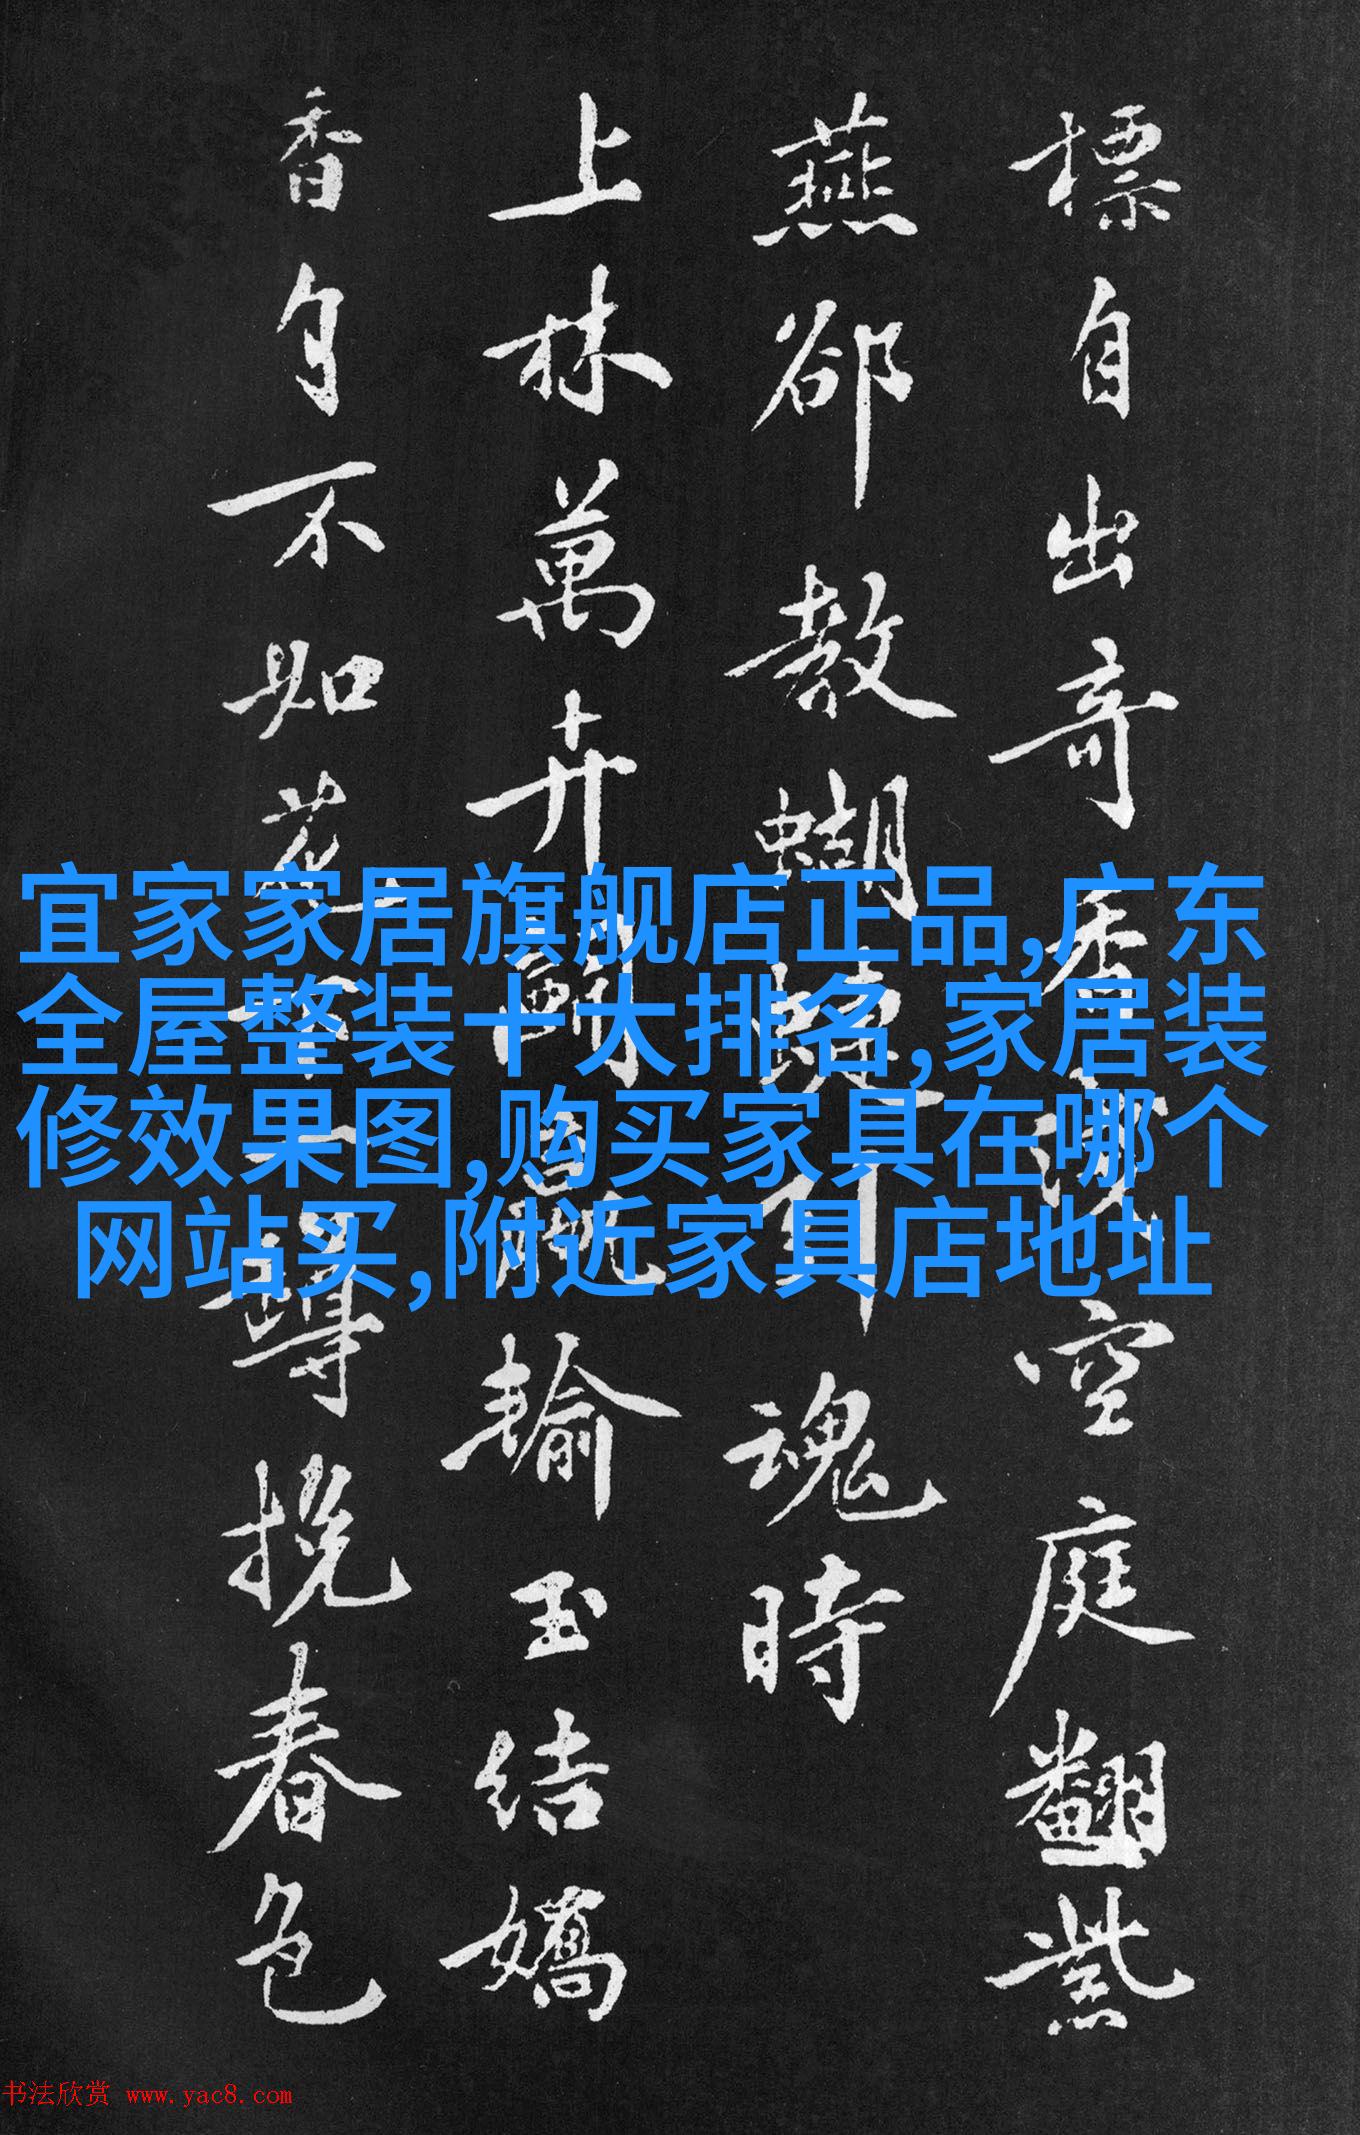 標自出奇香淡空庭翻紫
燕郤教蝴蝶引魂時
上林萬卉鬪嬴輸玉结嬌
香自不如花下一罇挽春色
宜家家居旗舰店正品,广东
全屋整装十大排名,家居装
修效果图,购买家具在哪个
网站买,附近家具店地址
书法欣赏 www.yac8.com